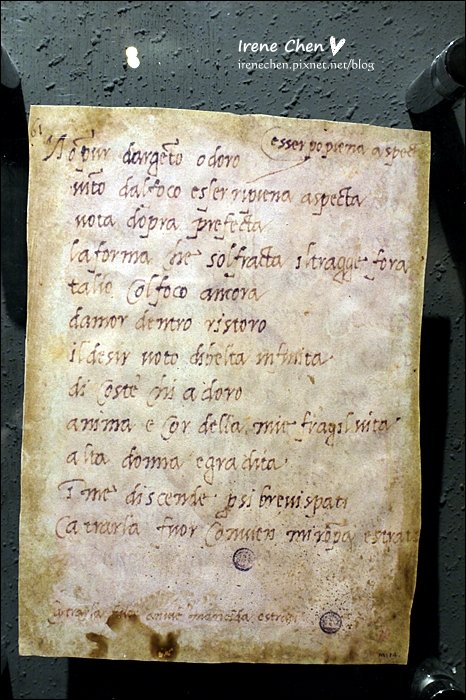 Irene Chen
irenechen.pixnet.net/blog
esser po piena aspect
No pur dargēto o doro
vīto dalfoco esser ripiena aspecta
vota dopra prefecta
la forma che sol fracta il tragge fora
tal io col foco ancora
damor dentro ristoro
il desir voto di belta infinita
di coste chi adoro
anima e cor della mie fragil vita
alta donna e gradita
in me discende p si brevi spati
ca trarla fuor convien mi rōpa e strati